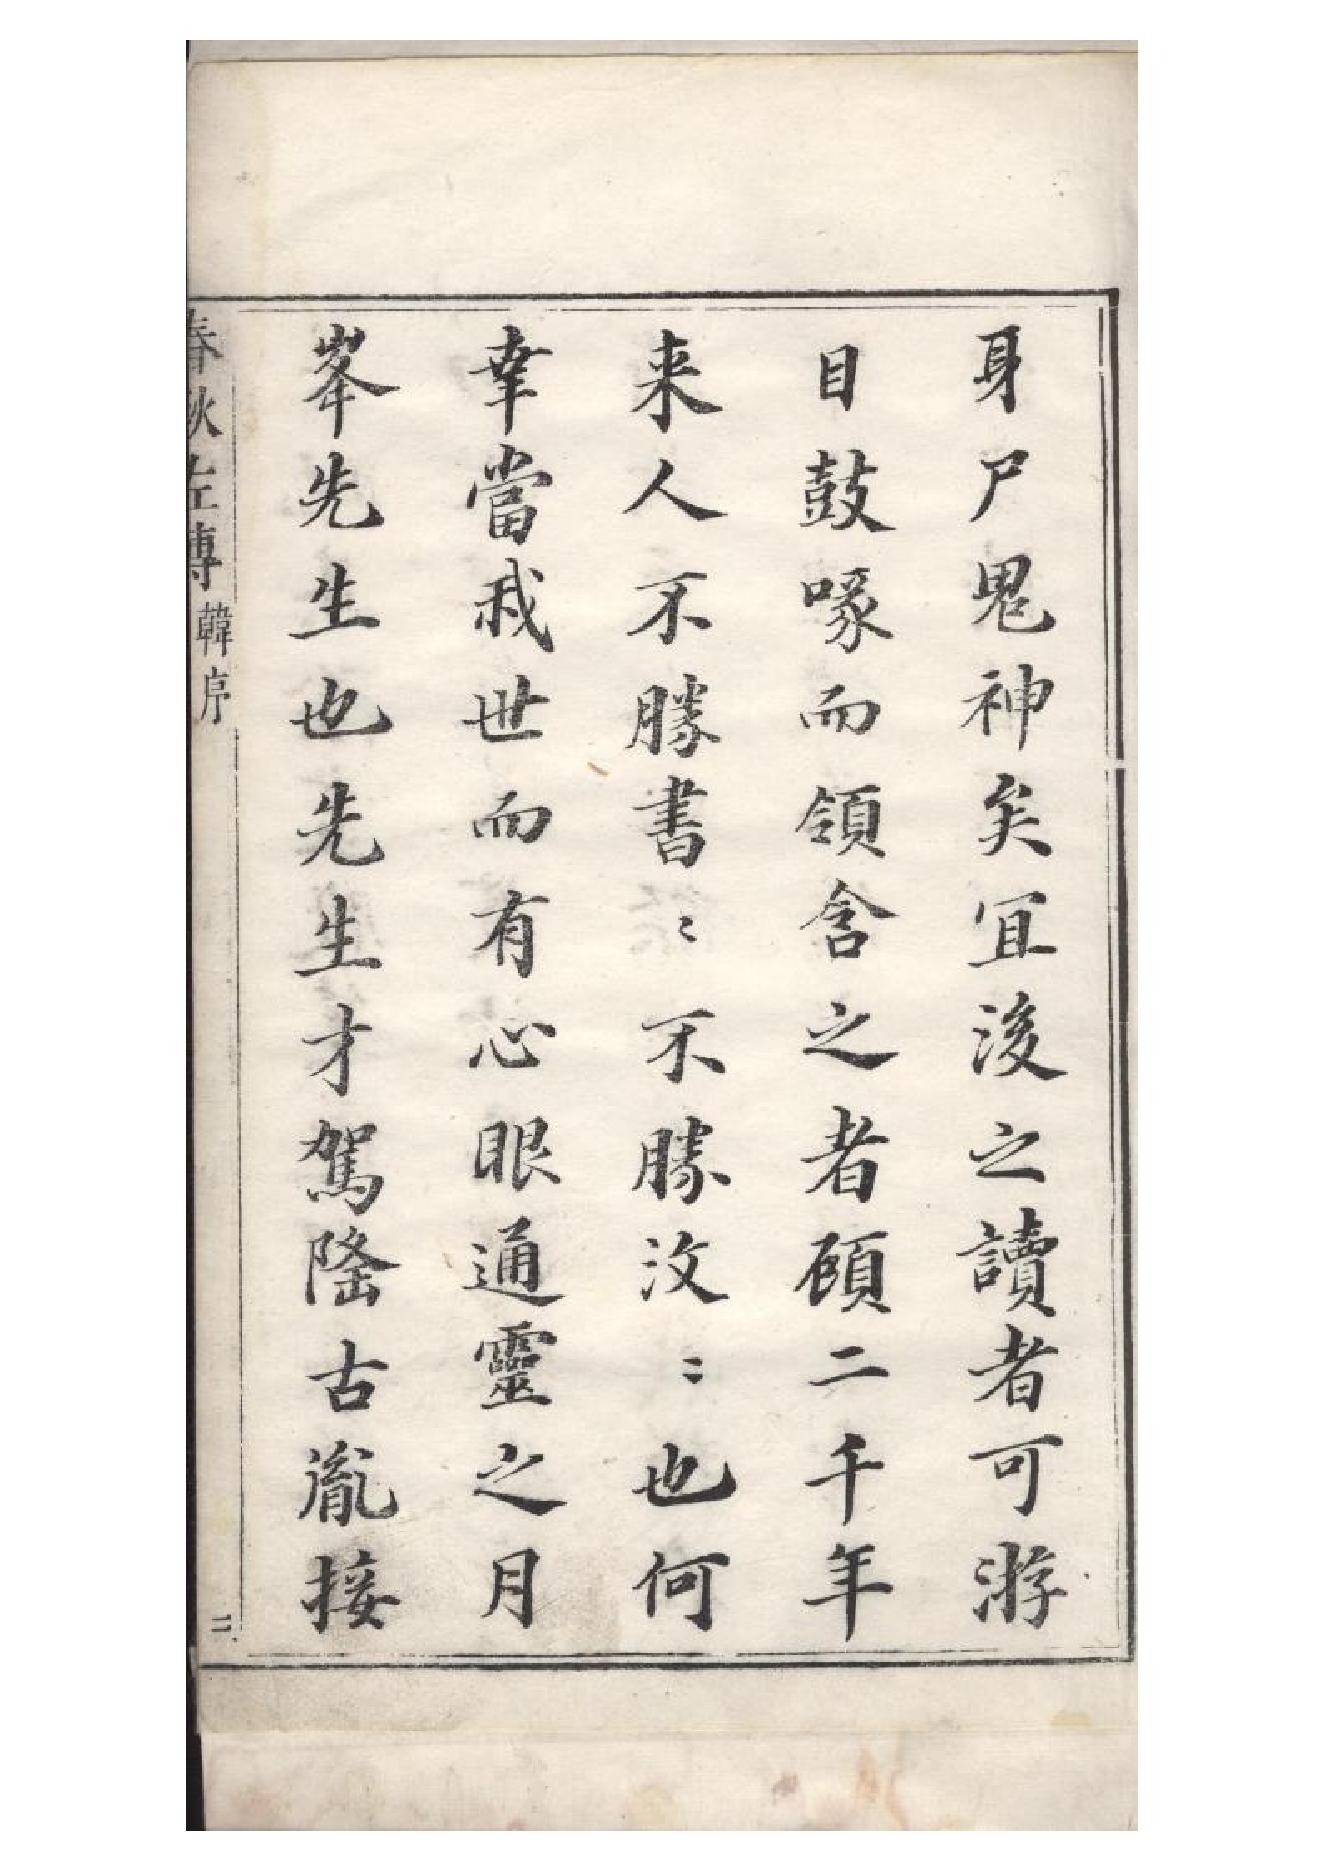 身尸鬼神矣宜後之讀者可游
目鼓喙而領含之者顧二千年
来人不勝書〻不勝汶〻也何
幸當我世而有心眼通靈之月
峯先生也先生才駕隆古胤接
春秋左傳 韓序 二